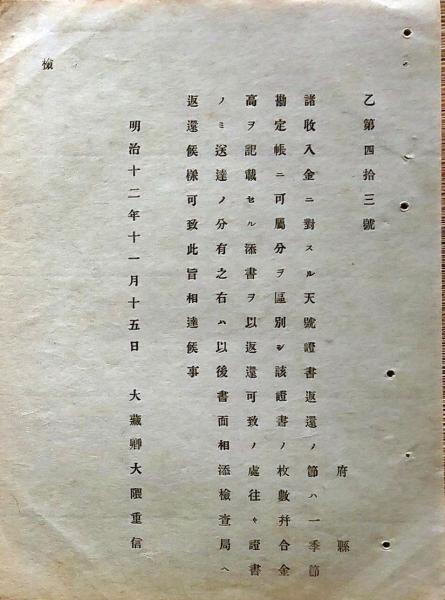 乙第四拾三號
府縣
諸收入金ニ對スル天號證書返還ノ節ハ一季節
勘定帳ニ可屬分ヲ區別シ該證書ノ枚數幷合金
高ヲ記載セル添書ヲ以返還可致ノ處往々證書
ノミ送達ノ分有之右ハ以後書面相添檢查局ヘ
返還候樣可致此旨相達候事
明治十二年十一月十五日 大藏卿大隈重信
檢